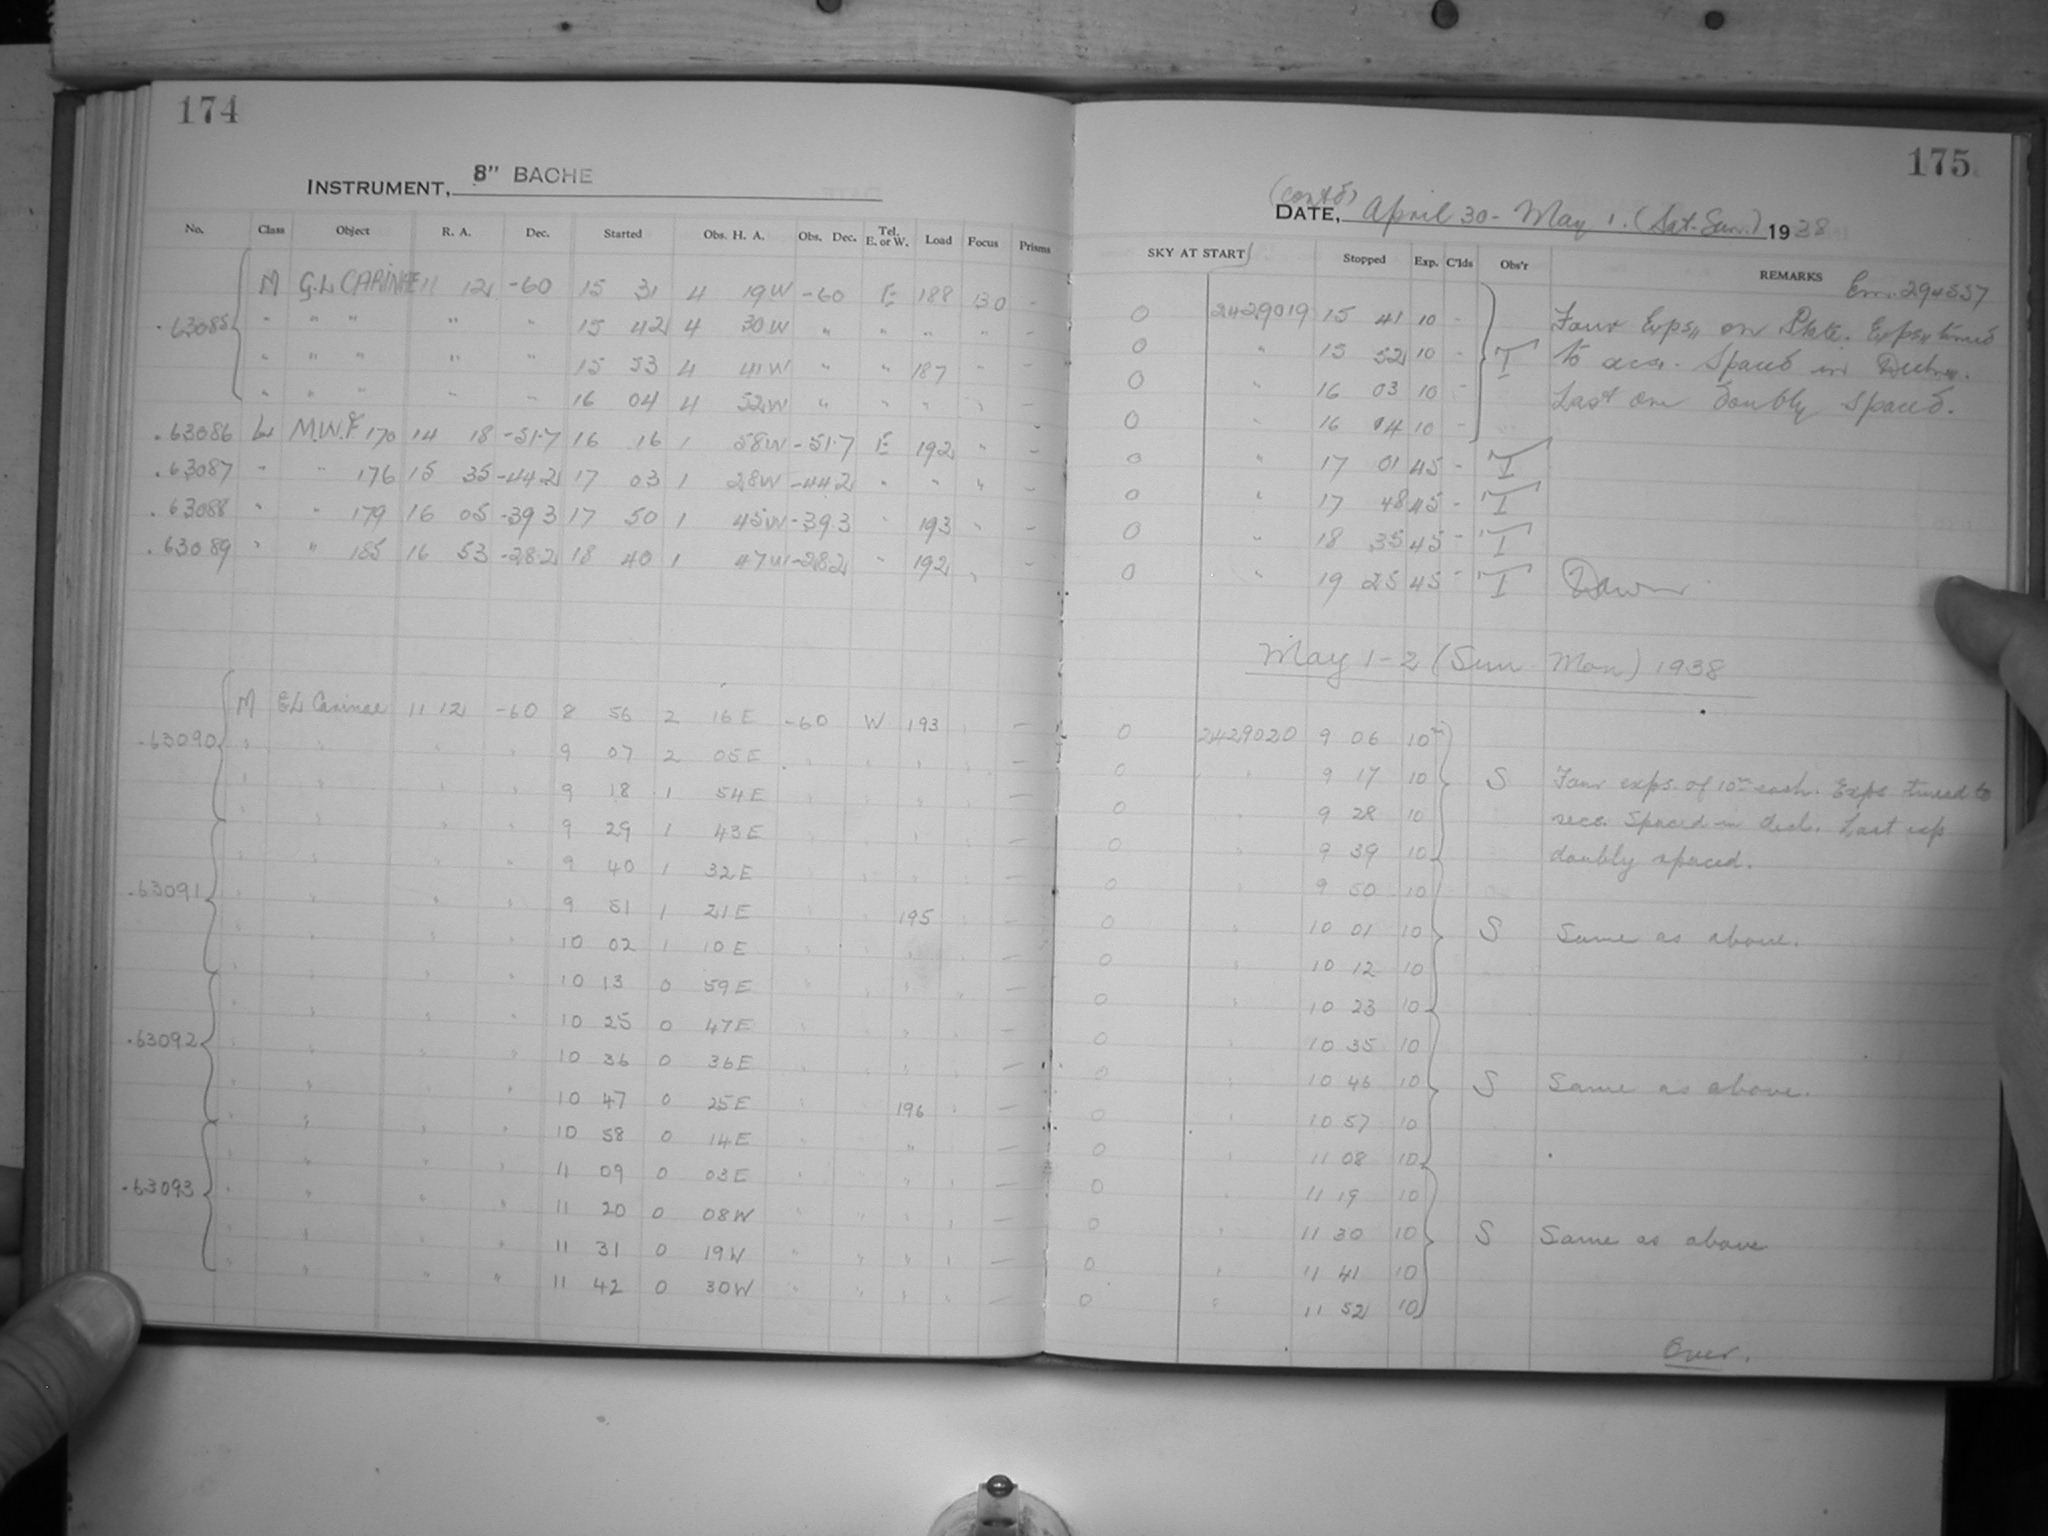 174
INSTRUMENT, 8" BACHE
No. Class Object R. A. Dec. Started Obs. H. A. Obs. Dec. Tel. E. or W. Load Focus Prisms
M G.L CARINAE 11 12 -60 15 31 4 19W -60 E 188 130 -
.63085 " " " " " 15 42 4 30W " " " " -
" " " " " 15 53 4 41W " " 187 " -
" " " " " 16 04 4 52W " " " " -
.63086 M.W.F 170 14 18 -51.7 16 16 1 58W -51.7 E 192 " -
.63087 " " 176 15 35 -44.2 17 03 1 28W -44.2 " " " -
.63088 " " 179 16 05 -39.3 17 50 1 45W -39.3 " 193 " -
.63089 " " 185 16 53 -28.2 18 40 1 47W -28.2 " 192 " -
M GL Carinae 11 12 -60 8 56 2 16E -60 W 193 -
.63090 " " " " 9 07 2 05E " " " " -
" " " " 9 18 1 54E " " " " -
" " " " 9 29 1 43E " " " " -
" " " " 9 40 1 32E " " " " -
.63091 " " " " 9 51 1 21E " " 195 " -
" " " " 10 02 1 10E " " " " -
" " " " 10 13 0 59E " " " " -
" " " " 10 25 0 47E " " " " -
.63092 " " " " 10 36 0 36E " " " " -
" " " " 10 47 0 25E " " 196 " -
" " " " 10 58 0 14E " " " " -
" " " " 11 09 0 03E " " " " -
.63093 " " " " 11 20 0 08W " " " " -
" " " " 11 31 0 19W " " " " -
" " " " 11 42 0 30W " " " " -
175
(contd)
DATE, April 30 - May 1. (Sat.-Sun.) 1938
SKY AT START Stopped Exp. C'lds Obs'r REMARKS
0 2429019 15 41 10 - Four Exps. on Plate. Exps. timed
0 " 15 52 10 - T to secs. Spaced in Decln.
0 " 16 03 10 - Last one doubly spaced.
0 " 16 14 10 -
0 " 17 01 45 - T
0 " 17 48 45 - T
0 " 18 35 45 - T
0 " 19 25 45 - T Dawn
May 1-2 (Sun Mon) 1938
0 2429020 9 06 10m
0 " 9 17 10 S Four exps. of 10m each. Exps timed to
0 " 9 28 10 secs. Spaced in decl. Last exp
0 " 9 39 10 doubly spaced.
0 " 9 50 10
0 " 10 01 10 S Same as above.
0 " 10 12 10
0 " 10 23 10
0 " 10 35 10
0 " 10 46 10 S Same as above.
0 " 10 57 10
0 " 11 08 10
0 " 11 19 10
0 " 11 30 10 S Same as above
0 " 11 41 10
0 " 11 52 10
Over.